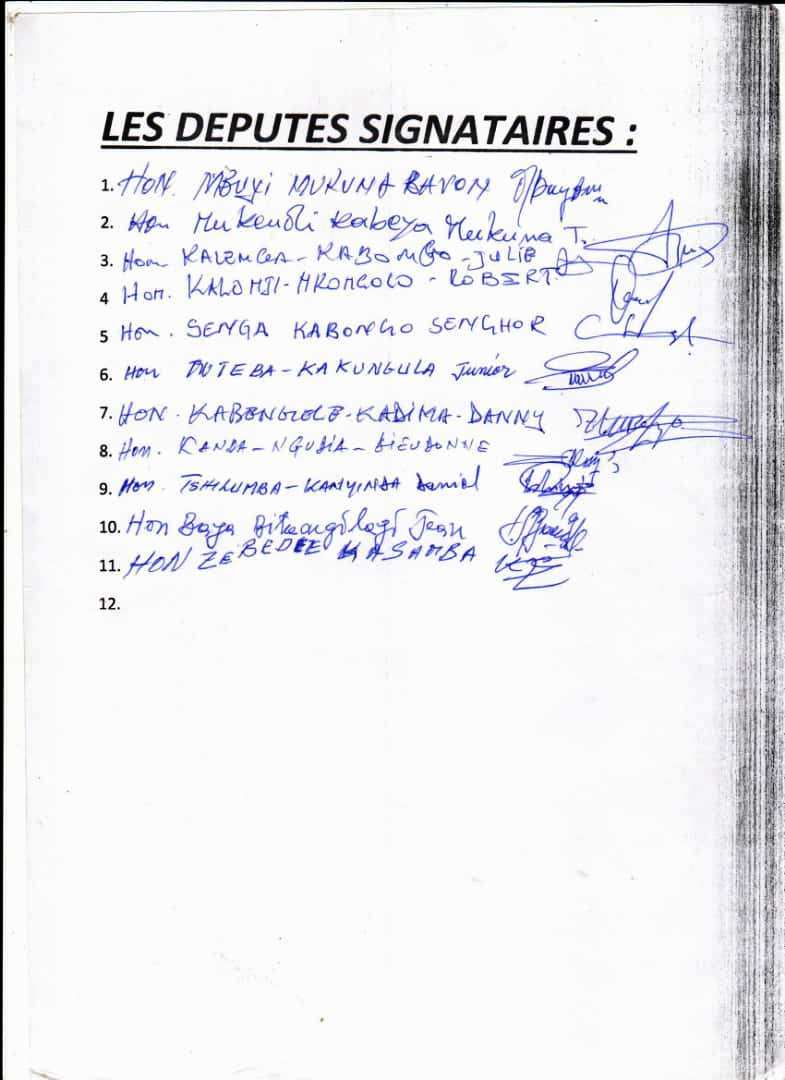 LES DEPUTES SIGNATAIRES :
1. HON. MBUYI MUKUNA BAVON
2. Hon Mukendi Kabeya Mukuna T.
3. Hon KALENGA - KABONGO - JULIE
4 Hon. KALOMJI - - ROBERT
5 Hon. SENGA KABONGO SENGHOR
6. Hon TUTEBA - KAKUNGULA Junior
7. HON. KABENGELE - KADIMA - DANNY
8. Hon. KANDA - NGUDIA - DIEUDONNE
9. Hon. TSHILUMBA - KANYINDA Daniel
10. Hon Baya Jean
11. HON ZEBEDEE KASAMBA
12.